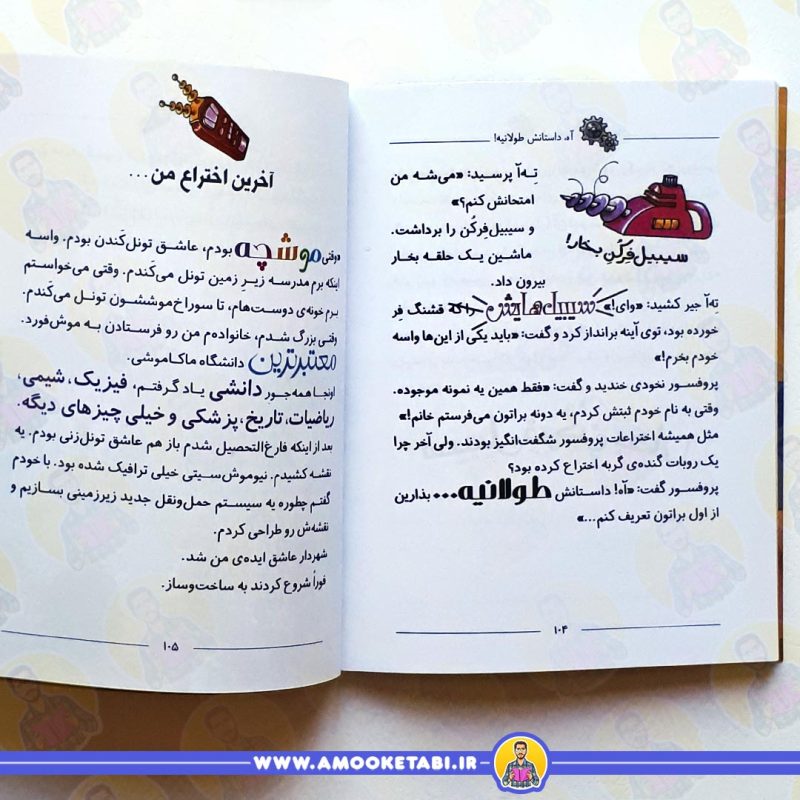 آه، داستانش طولانیه!
تِه‌آ پرسید: «می‌شه من
امتحانش کنم؟»
و سیبیل‌فِرکُن را برداشت.
ماشین یک حلقه بخار
بیرون داد.
سیبیل‌فِرکُن بخار!
تِه‌آ جیر کشید: «وای!» سیبیل‌هایش را که قشنگ فِر
خورده بود، توی آینه برانداز کرد و گفت: «باید یکی از این‌ها واسه
خودم بخرم!»
پروفسور نخودی خندید و گفت: «فقط همین یه نمونه موجوده.
وقتی به نام خودم ثبتش کردم، یه دونه براتون می‌فرستم خانم!»
مثل همیشه اختراعات پروفسور شگفت‌انگیز بودند. ولی آخر چرا
یک روبات گنده‌ی گربه اختراع کرده بود؟
پروفسور گفت: «آه! داستانش طولانیه... بذارین
از اول براتون تعریف کنم...»
۱۰۴
آخرین اختراع من ...
«وقتی موشچه بودم، عاشق تونل‌کَندن بودم. واسه
اینکه برم مدرسه زیرِ زمین تونل می‌کَندم. وقتی می‌خواستم
برم خونه‌ی دوست‌هام، تا سوراخ‌موششون تونل می‌کَندم.
وقتی بزرگ شدم، خانواده‌م من رو فرستادن به موش‌فورد.
معتبرترین دانشگاه ماکاموشی.
اونجا همه‌جور دانشی یاد گرفتم، فیزیک، شیمی،
ریاضیات، تاریخ، پزشکی و خیلی چیزهای دیگه.
بعد از اینکه فارغ‌التحصیل شدم باز هم عاشق تونل‌زنی بودم. یه
نقشه کشیدم. نیوموش‌سیتی خیلی ترافیک شده بود. با خودم
گفتم چطوره یه سیستم حمل‌ونقل جدید زیرزمینی بسازیم و
نقشه‌ش رو طراحی کردم.
شهردار عاشق ایده‌ی من شد.
فوراً شروع کردند به ساخت‌وساز.
۱۰۵
WWW.AMOOKETABI.IR